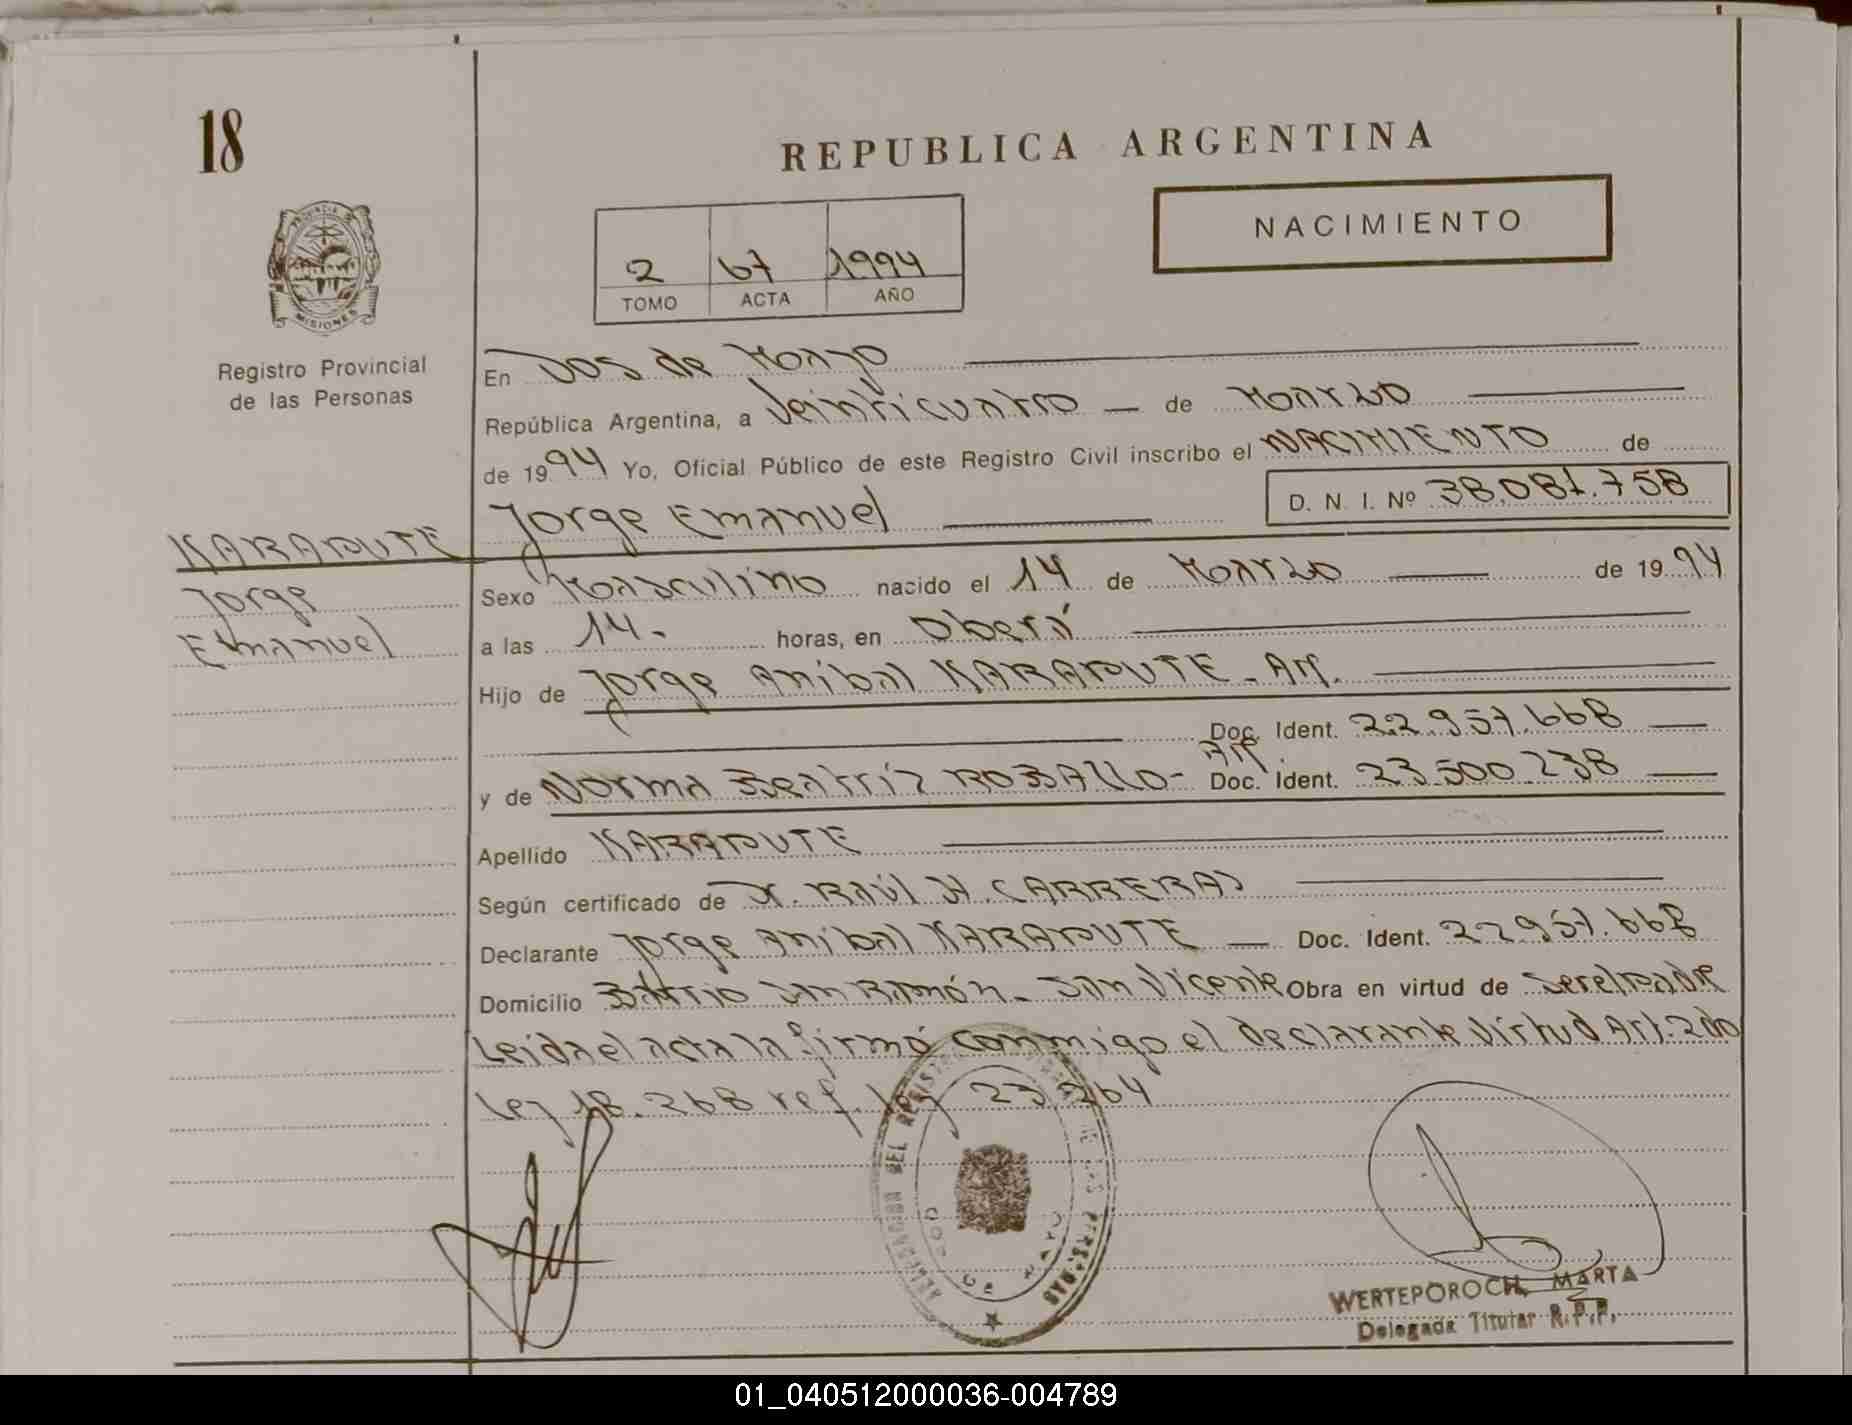 18
REPUBLICA ARGENTINA
NACIMIENTO
2 67 1994
TOMO ACTA AÑO
PROVINCIA DE
MISIONES
Registro Provincial
de las Personas
En Dos de Mayo
República Argentina, a Veinticuatro — de Marzo
de 1994 Yo, Oficial Público de este Registro Civil inscribo el NACIMIENTO de
Jorge Emanuel D. N. I. Nº 38.081.758
KARADUTE
Jorge
Emanuel
Sexo Masculino nacido el 14 de Marzo de 1994
a las 14.- horas, en Oberá
Hijo de Jorge Anibal KARADUTE - Arg.
Doc. Ident. 22.957.668
Arg.
y de Norma Beatriz ROBALLO - Doc. Ident. 23.500.238
Apellido KARADUTE
Según certificado de Dr. RAÚL H. CARRERAS
Declarante Jorge Anibal KARADUTE — Doc. Ident. 22.957.668
Domicilio Barrio San Ramón - San Vicente Obra en virtud de ser el padre
Leida el acta la firmó conmigo el declarante Virtud Art. 2do
Ley 18.268 ref. Ley 23.264
DELEGACION DEL REGISTRO DE LAS PERSONAS
DOS DE MAYO
WERTEPOROCH, MARTA
Delegada Titular R.P.P.
01_040512000036-004789